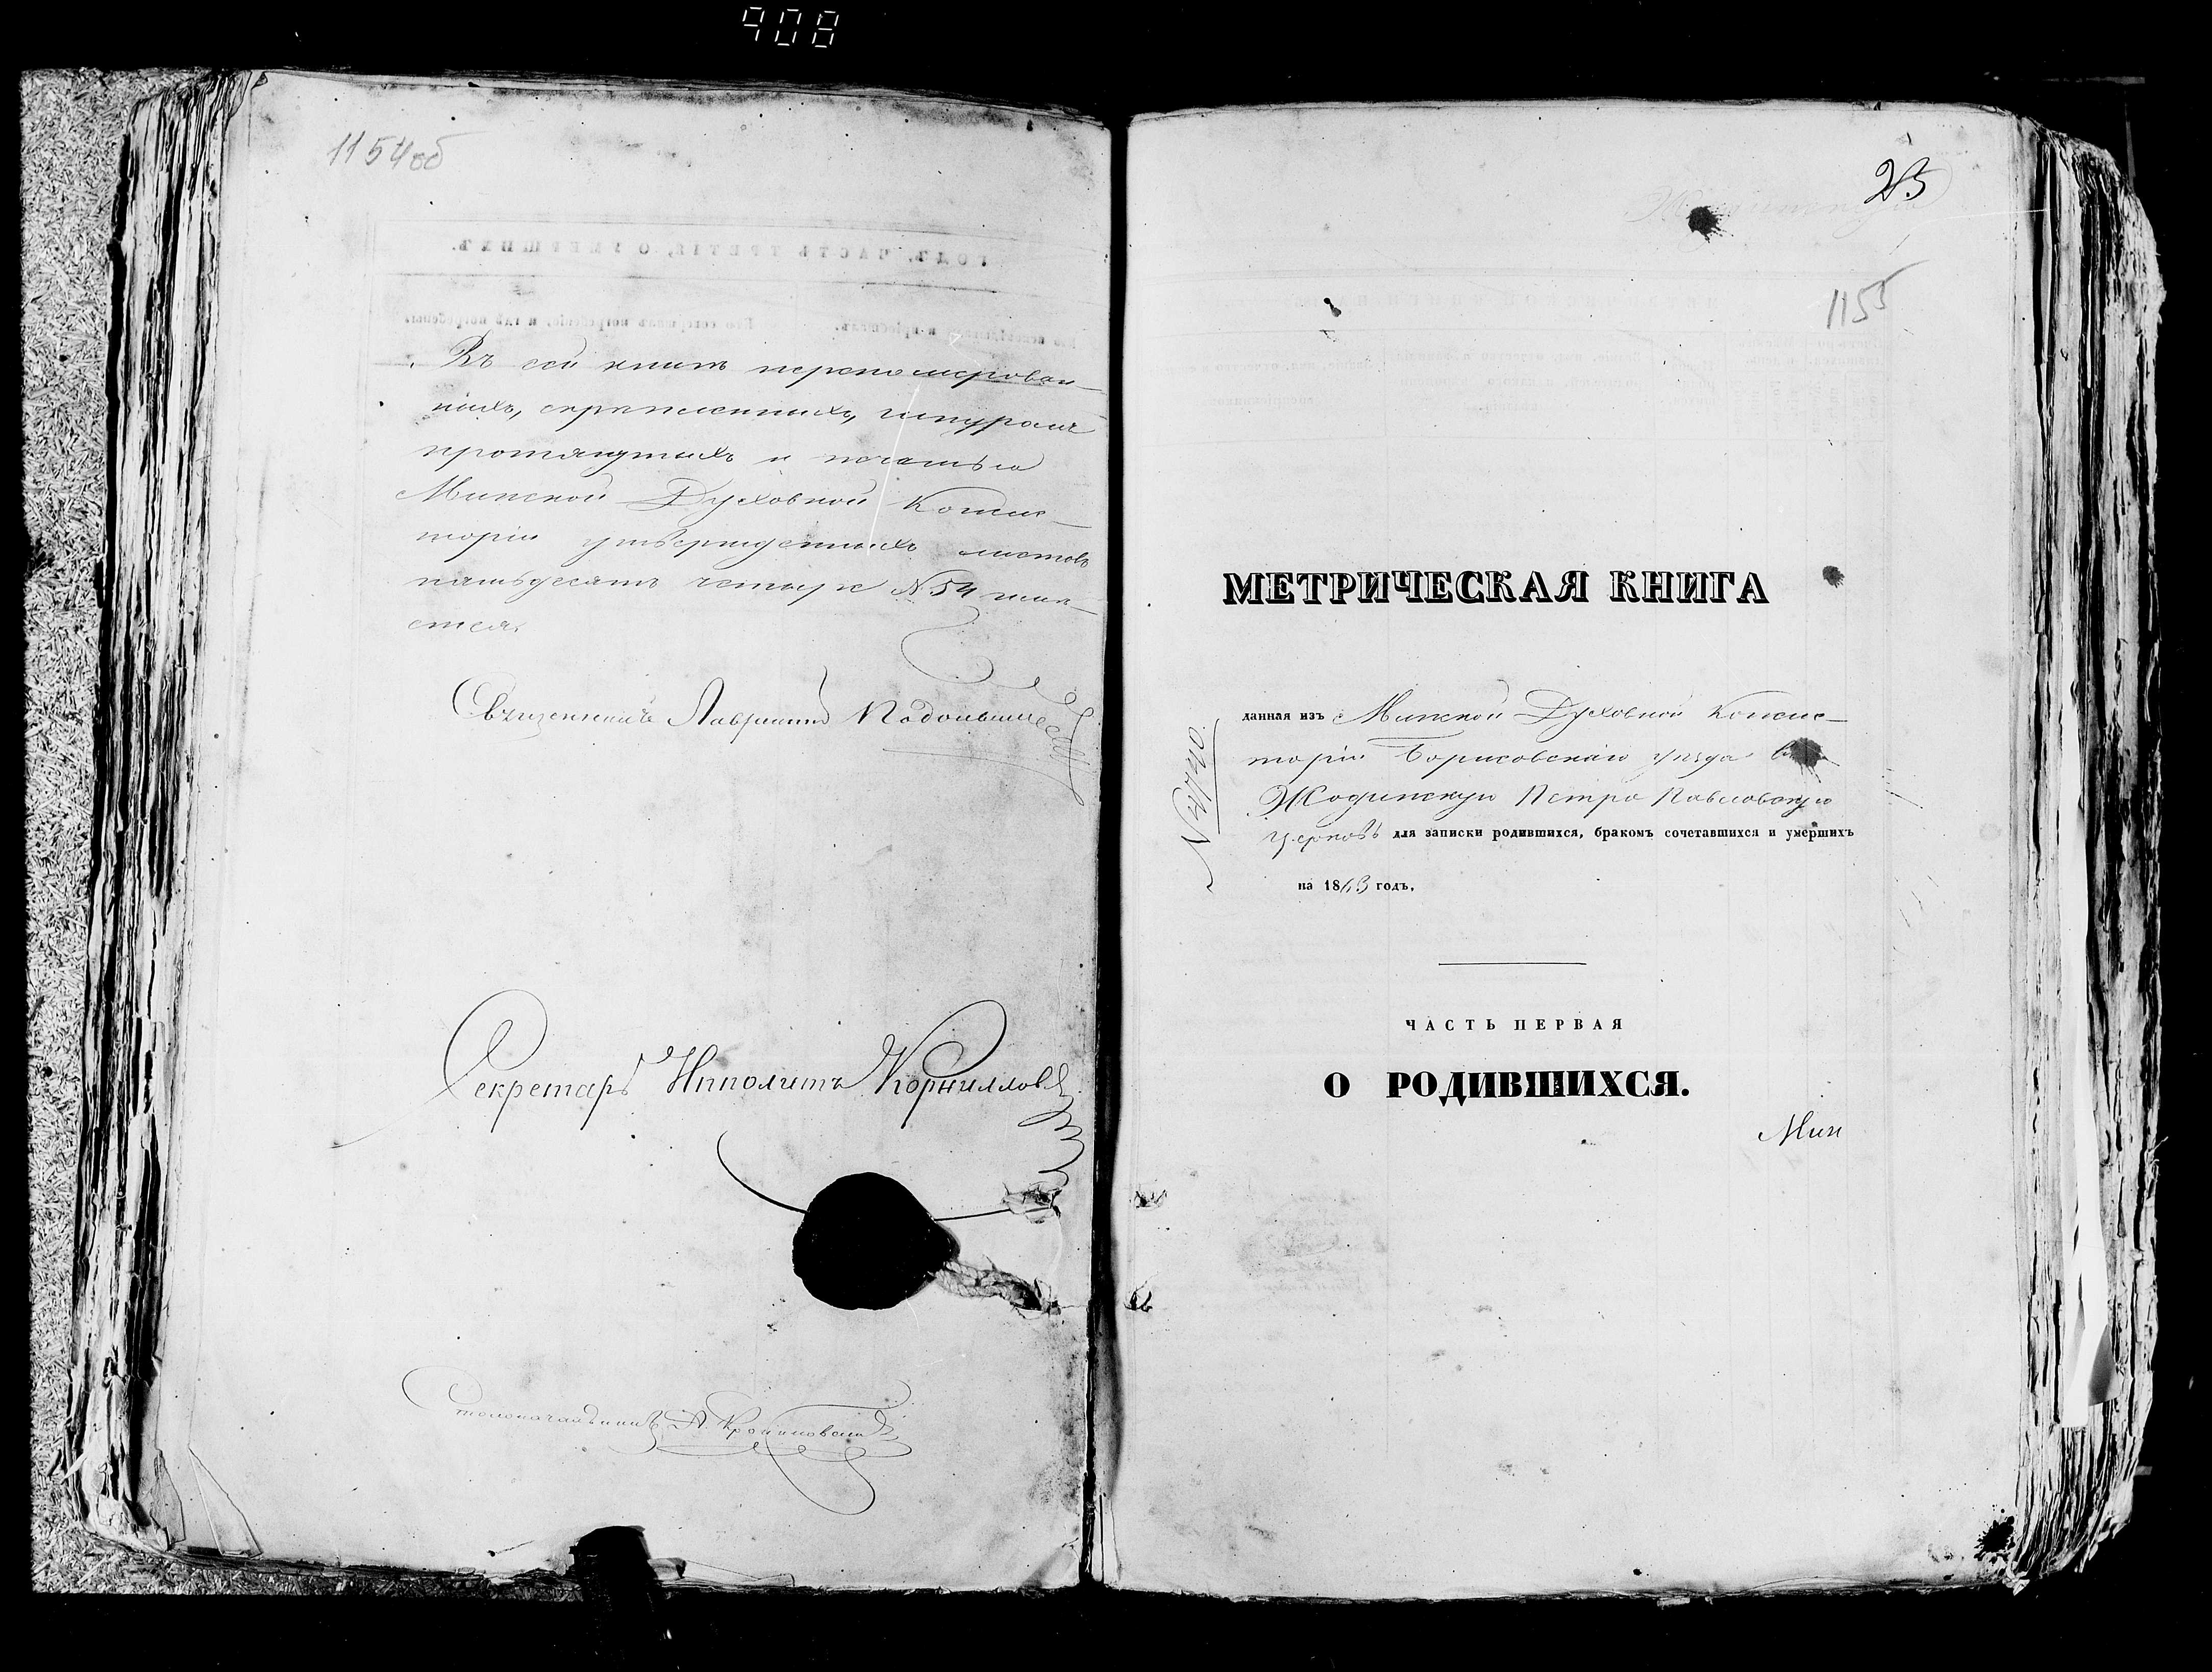 908
1154об
Въ сей книгѣ перенумерован-
ныхъ, скрѣпленныхъ, шнуромъ
протянутыхъ и печатью
Минской Духовной Консис-
торіи утвержденныхъ листовъ
пятьдесятъ четыре №54 зна-
ится.
Священникъ Лаврентій
Секретарь Ипполитъ Корниловъ
Столоначальникъ А.
23
1155
МЕТРИЧЕСКАЯ КНИГА
данная изъ Минской Духовной Консис-
торіи Борисовскаго уѣзда въ
Жодинскую Петро Павловскую
церковь для записки родившихся, бракомъ сочетавшихся и умершихъ
на 1863 годъ.
ЧАСТЬ ПЕРВАЯ
О РОДИВШИХСЯ.
Мин